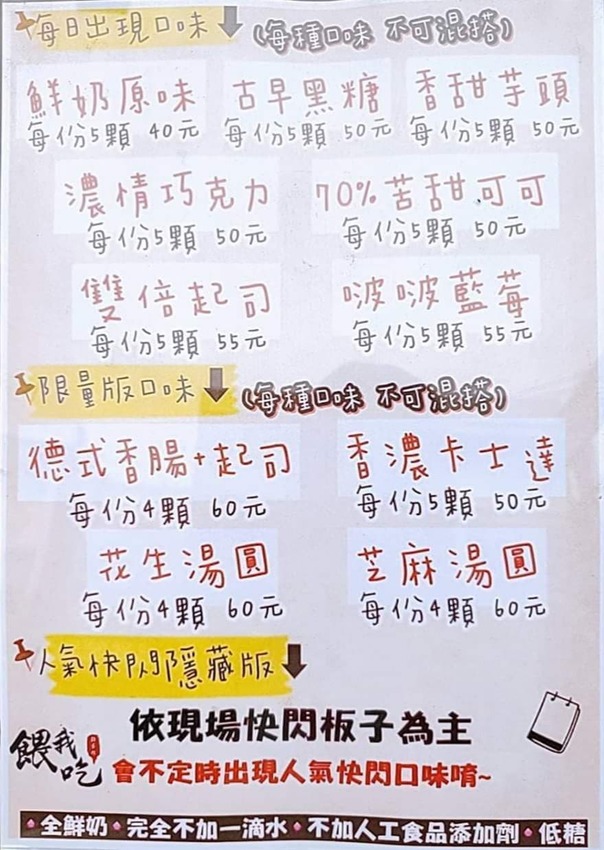 每日出現口味 (每種口味 不可混搭)
鮮奶原味 古早黑糖 香甜芋頭
每份5顆 40元 每份5顆 50元 每份5顆 50元
濃情巧克力 70%苦甜可可
每份5顆 50元 每份5顆 50元
雙倍起司 啵啵藍莓
每份5顆 55元 每份5顆 55元
限量版口味 (每種口味 不可混搭)
德式香腸+起司 香濃卡士達
每份4顆 60元 每份5顆 50元
花生湯圓 芝麻湯圓
每份4顆 60元 每份4顆 60元
人氣快閃隱藏版
依現場快閃板子為主
餵我吃
會不定時出現人氣快閃口味唷~
全鮮奶 完全不加一滴水 不加人工食品添加劑 低糖